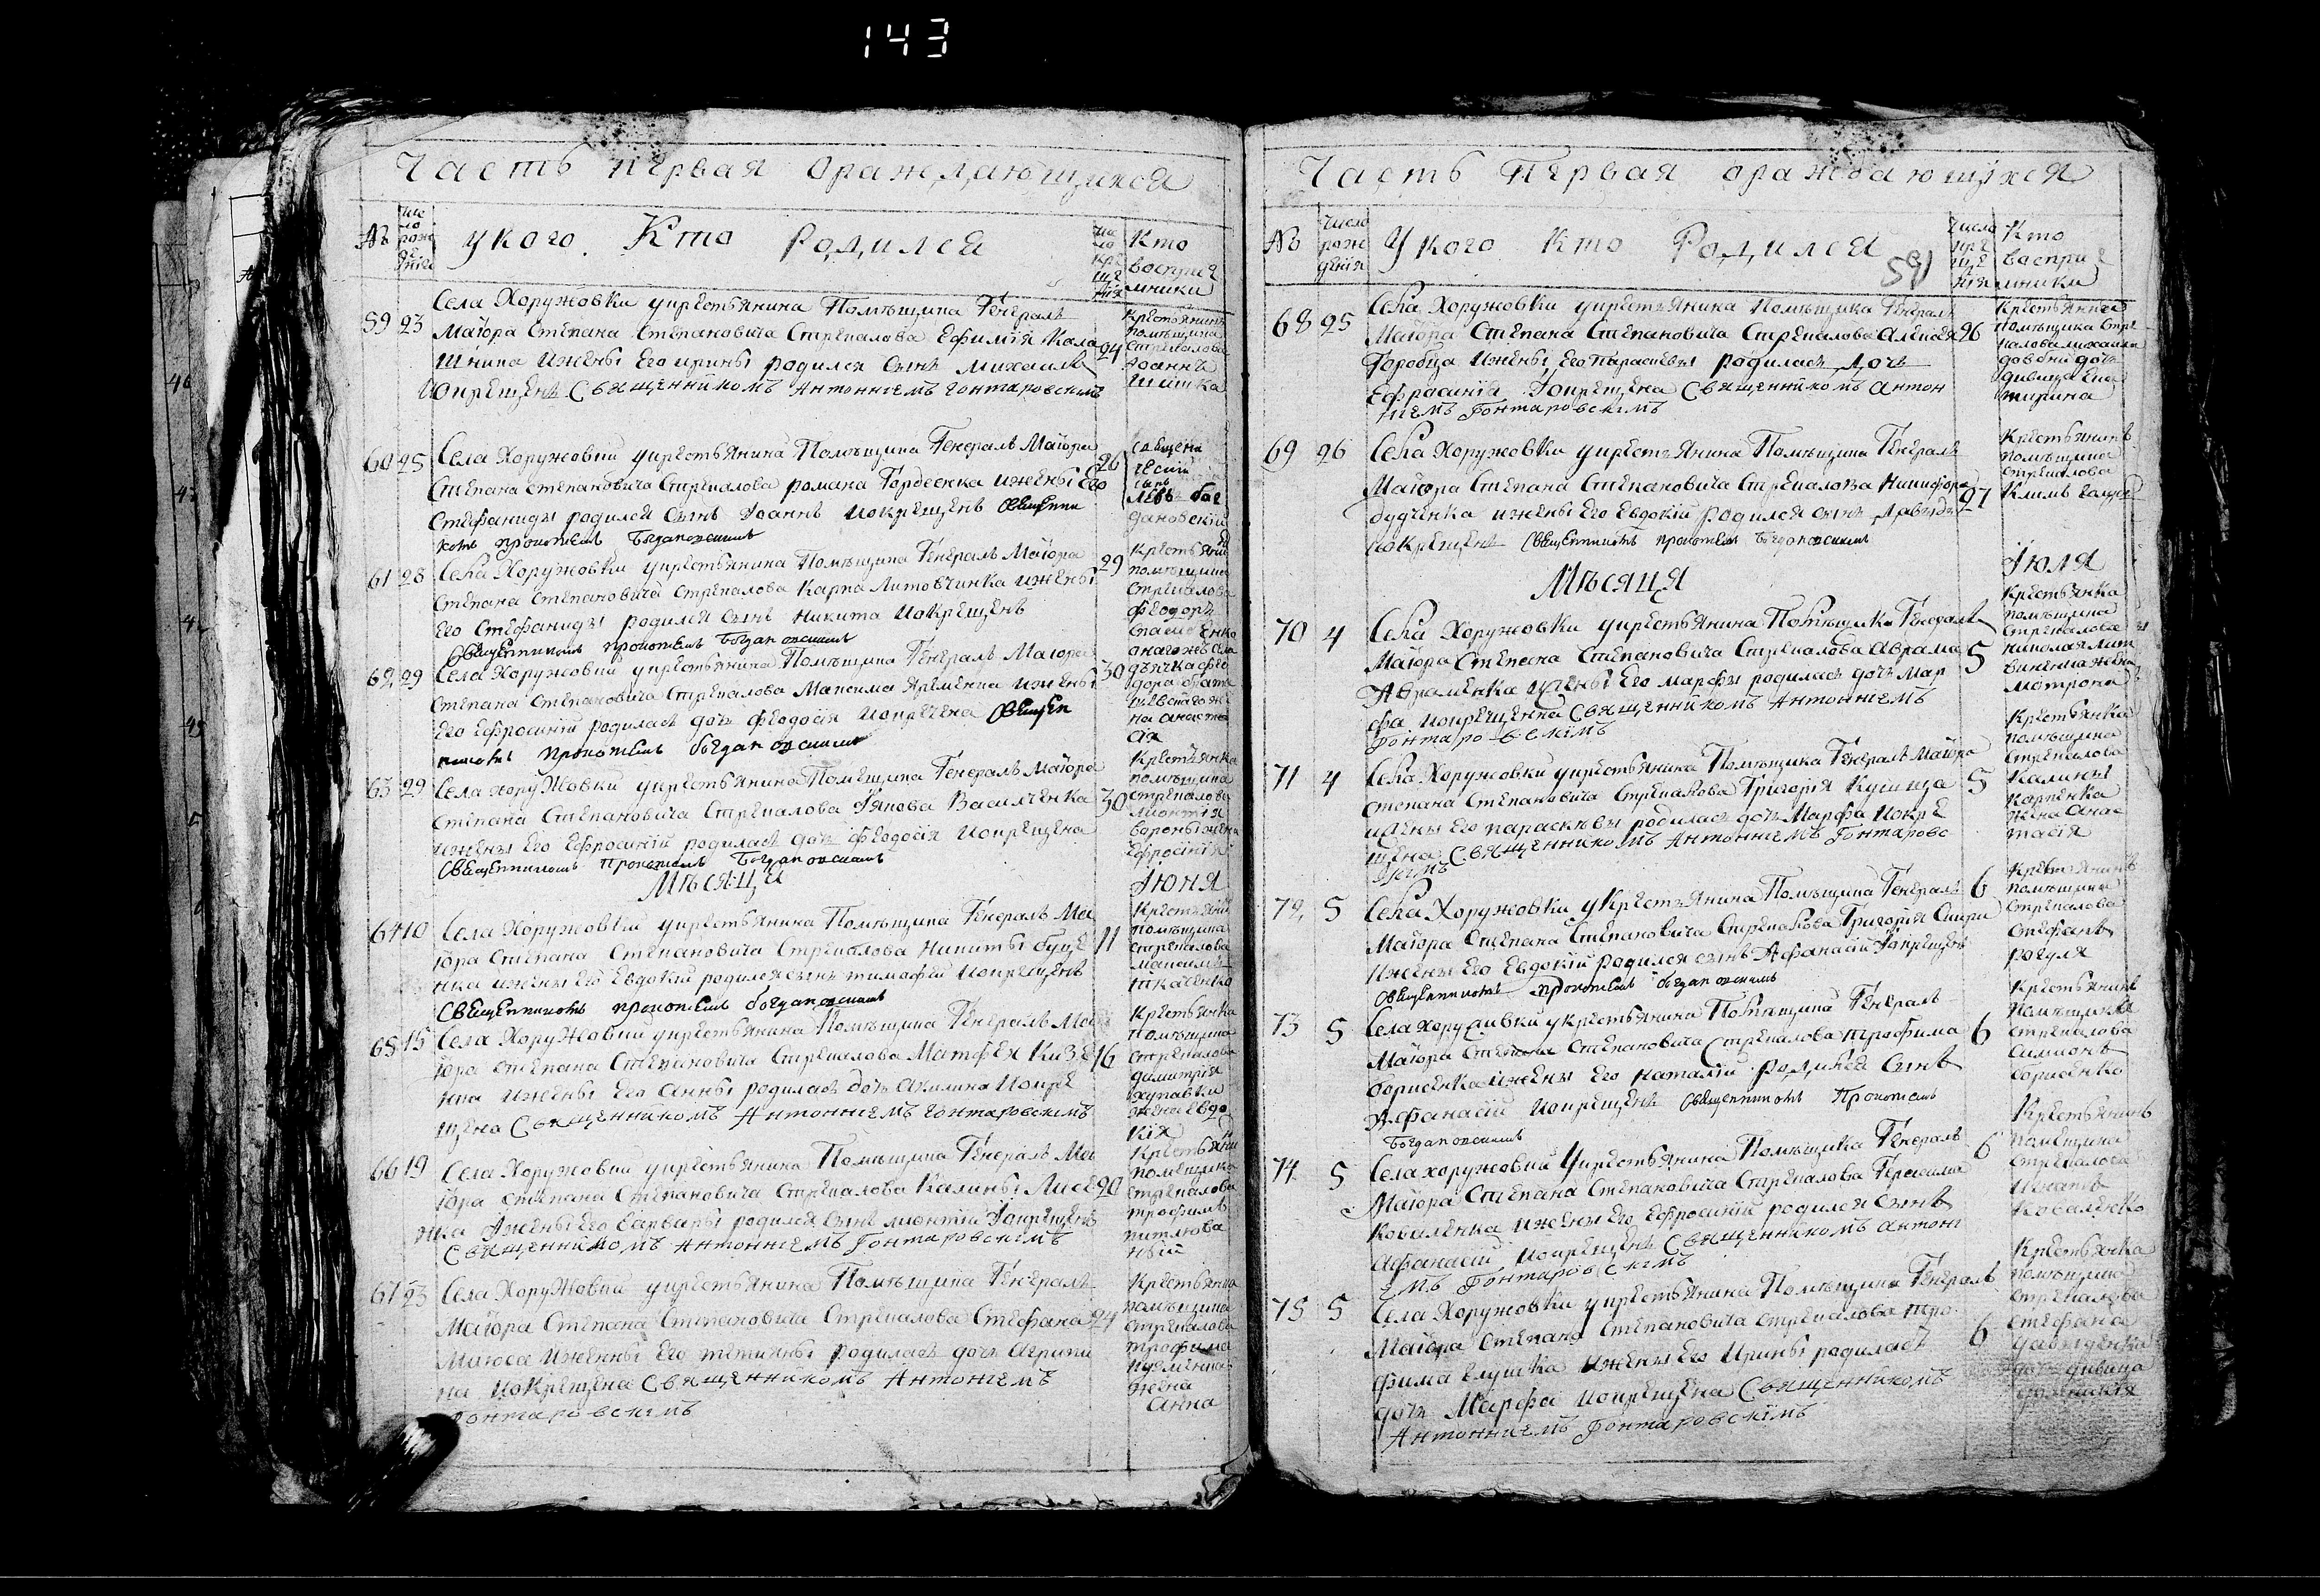 143
Часть первая ораждающихся
№
число рождения
у кого Кто Родился
число крещения
Кто восприемники
59 23
Села Хоружовки у крестьянина Помѣщика Генералъ
Маіора Степана Степановича Стрекалова Ефимія Кала
шника и жены Его ирины родился сынъ Михаилъ
и окрещенъ Священникомъ Антоніемъ Гонтаровскимъ
24
крестьянинъ
помѣщика
Стрекалова
Іоаннъ
60 25
Села Хоружовки у крестьянина Помѣщика Генералъ Маіора
Степана Степановича Стрекалова романа Гордеенка и жены Его
Стефаниды родился сынъ Іоаннъ и окрещенъ Священни
комъ Прокопіемъ Богдановскимъ
26
Левъ бог
дановскій
61 28
Села Хоружовки у крестьянина Помѣщика Генералъ Маіора
Степана Степановича Стрекалова Карпа Литовченка и жены
Его Стефаниды родился сынъ Никита и окрещенъ
Священникомъ Прокопіемъ Богдановскимъ
29
крестьянинъ
помѣщика
Стрекалова
феодоръ
62 29
Села Хоружовки у крестьянина Помѣщика Генералъ Маіора
Степана Степановича Стрекалова Максима Яременка и жены
Его Ефросиніи родилась дочь Феодосія и окрещена Священ
никомъ Прокопіемъ богдановскимъ
30
63 29
Села хоружовки у крестьянина Помещика Генералъ Маіора
Степана Степановича Стрекалова Іякова Василченка
и жены Его Ефросиніи родилась дочь Феодосія и окрещена
Священникомъ Прокопіемъ Богдановскимъ
30
Крестьянка
помѣщика
Стрекалова
жена
Ефросинія
Мѣсяца Іюня
64 10
Села Хоружовки у крестьянина Помѣщика Генералъ Ма
іора Степана Степановича Стрекалова Никиты буце
нка и жены Его Евдокіи родился сынъ тимофей и окрещенъ
Священникомъ Прокопіемъ богдановскимъ
11
Крестьянинъ
помѣщика
Стрекалова
максимъ
ткаченко
65 15
Села Хоружовки у крестьянина Помѣщика Генералъ Ма
іора Степана Степановича Стрекалова Матфея Кизе
нка и жены Его Анны родилась дочь Акилина и окре
щена Священникомъ Антоніемъ Гонтаровскимъ
16
Крестьянка
помѣщика
Стрекалова
димитрія
жена евдо
кія
66 19
Села Хоружовки у крестьянина Помѣщика Генералъ Ма
іора Степана Степановича Стрекалова Калины Лисе
нка и жены Его варвары родился сынъ леонтій и окрещенъ
Священникомъ Антоніемъ Гонтаровскимъ
20
Крестьянинъ
помещика
Стрекалова
трофимъ
67 23
Села Хоружовки у крестьянина Помѣщика Генералъ
Маіора Степана Степановича Стрекалова Стефана
и жены Его тетяны родилась дочь Агрипи
на и окрещена Священникомъ Антоніемъ
Гонтаровскимъ
24
Крестьянина
помѣщика
Стрекалова
трофима
жена
Анна
Часть Первая ораждающихся
№
Число рождения
У кого кто Родился
591
Число крещения
Кто восприемники
68 25
Села Хоружовки у крестьянина Помѣщика Генералъ
Маіора Степана Степановича Стрекалова Алексея
Горобца и жены Его Параскевы родилась Дочь
Ефросинія и окрещена Священникомъ Антон
іемъ Гонтаровскимъ
26
помѣщика Стре
калова михаила
дочь
дивица Ека
тирина
69 26
Села Хоружовки у крестьянина Помѣщика Генералъ
Маіора Степана Степановича Стрекалова Никифора
будченка и жены Его Евдокіи родился сынъ Давыдъ
и окрещенъ Священникомъ Прокопіемъ Богдановскимъ
27
Крестьянинъ
помѣщика
Стрекалова
Климъ
Мѣсяца Іюля
70 4
Села Хоружовки у крестьянина Помѣщика Генералъ
Маіора Степана Степановича Стрекалова Аврама
Авраменка и жены Его марфы родилась дочь Мар
фа и окрещенна Священникомъ Антоніемъ
Гонтаровскимъ
5
крестьянка
помѣщика
Стрекалова
николая лит
виненка жена
Матрона
71 4
Села Хоружовки у крестьянина Помѣщика Генералъ Маіора
Степана Степановича Стрекалова Григорія Кушица
и жены Его параскевы родилась дочь Марфа и окре
щена Священникомъ Антоніемъ Гонтаровс
кимъ
5
Крестьянка
помѣщика
Стрекалова
Калины
Карпенка
жена Анас
тасія
72 5
Села Хоружовки у крестьянина Помѣщика Генералъ
Маіора Степана Степановича Стрекалова Григорія Скири
и жены Его Евдокіи родился сынъ Афанасій и окрещенъ
Священникомъ Прокопіемъ богдановскимъ
6
крестьянинъ
помѣщика
Стрекалова
Стефанъ
рогуля
73 5
Села хоружовки у крестьянина Помѣщика Генералъ
Маіора Степана Степановича Стрекалова трофима
борисенка и жены Его наталіи родился сынъ
Афанасій и окрещенъ Священникомъ Прокопіемъ
Богдановскимъ
6
Крестьянинъ
Помѣщика
Стрекалова
Симионъ
борисенко
74 5
Села хоружовки У крестьянина Помѣщика Генералъ
Маіора Степана Степановича Стрекалова Герасима
коваленка и жены Его Ефросиніи родился сынъ
Афанасій и окрещенъ Священникомъ Антоні
емъ Гонтаровскимъ
6
Крестьянинъ
помещика
Стрекалова
Игнатъ
Коваленко
75 5
Села Хоружовки у крестьянина Помѣщика Генералъ
Маіора Степана Степановича Стрекалова тро
фима Елушка и жены Его Ирины родилась
дочь Марфа и окрещена Священникомъ
Антоніемъ Гонтаровскимъ
6
Крестьянка
помѣщика
Стрекалова
Стефана
дивица